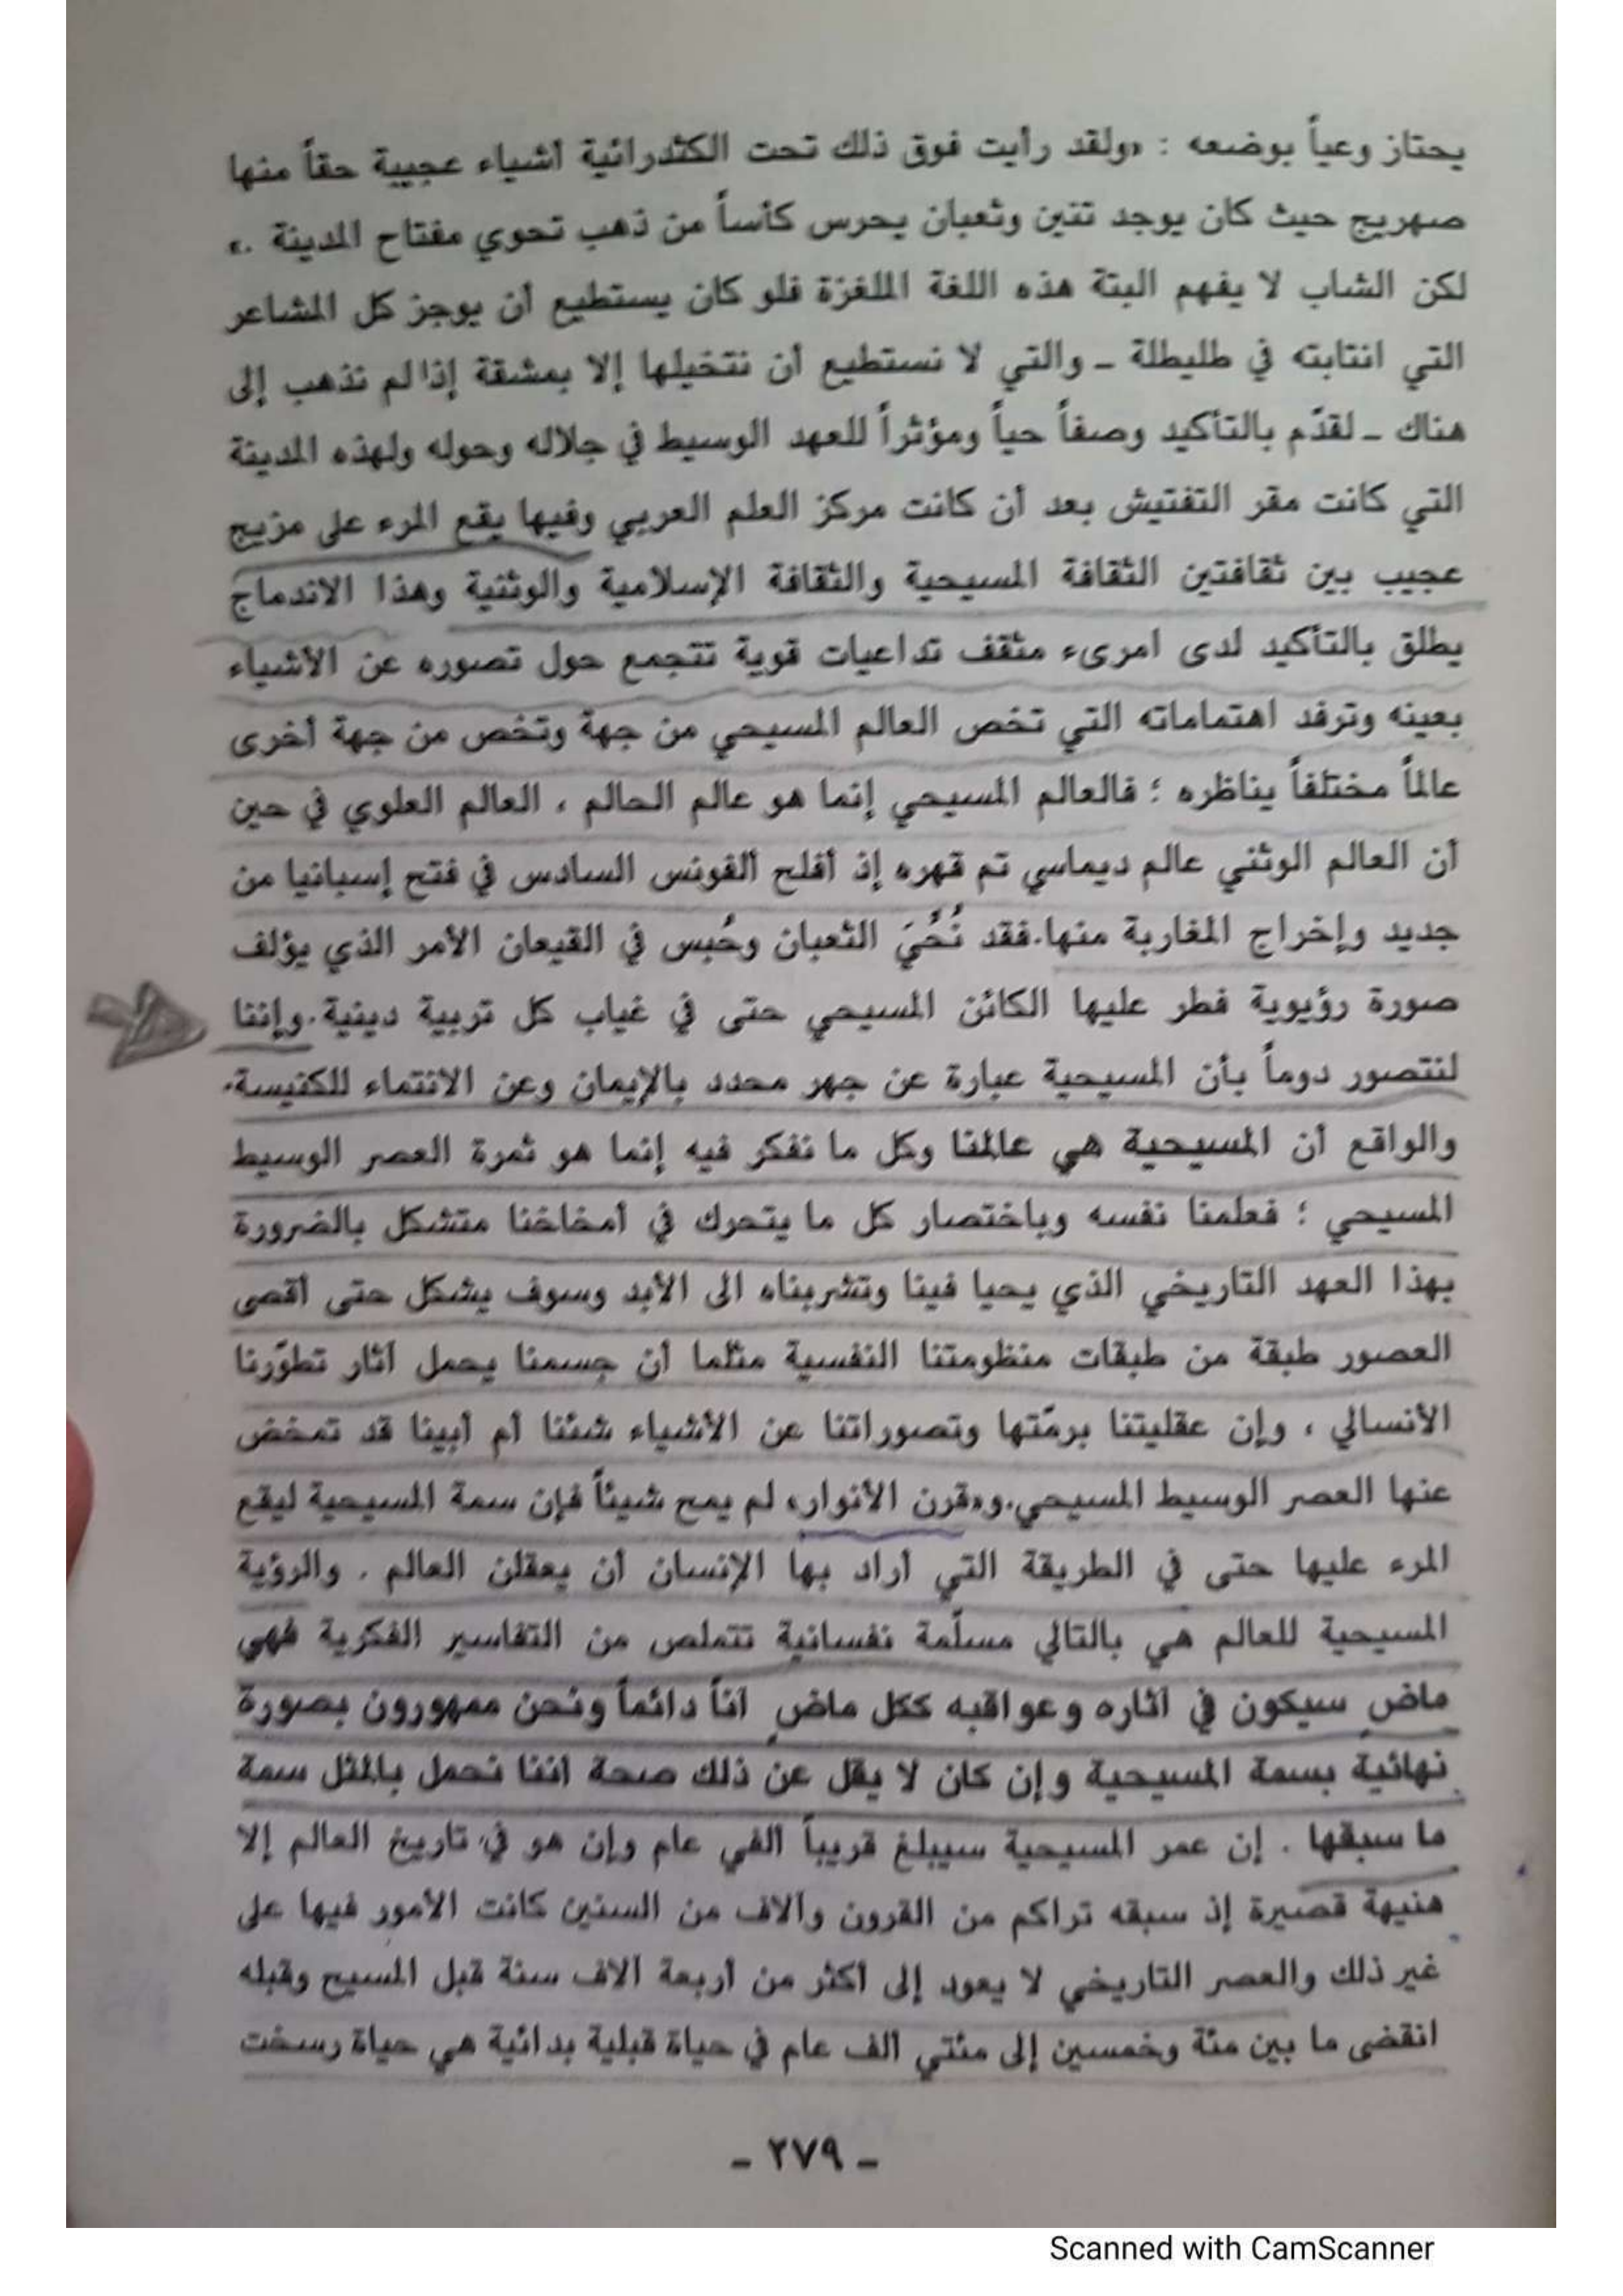 يحتاز وعياً بوضعه : «ولقد رأيت فوق ذلك تحت الكتدرائية أشياء عجيبة حقاً منها
صهريج حيث كان يوجد تنين وثعبان يحرس كأساً من ذهب تحوي مفتاح المدينة .»
لكن الشاب لا يفهم البتة هذه اللغة الملغزة فلو كان يستطيع أن يوجز كل المشاعر
التي انتابته في طليطلة ـ والتي لا نستطيع أن نتخيلها إلا بمشقة إذا لم نذهب إلى
هناك ـ لقدّم بالتأكيد وصفاً حياً ومؤثراً للعهد الوسيط في جلاله وحوله ولهذه المدينة
التي كانت مقر التفتيش بعد أن كانت مركز العلم العربي وفيها يقع المرء على مزيج
عجيب بين ثقافتين الثقافة المسيحية والثقافة الإسلامية والوثنية وهذا الاندماج
يطلق بالتأكيد لدى امرىء مثقف تداعيات قوية تتجمع حول تصوره عن الأشياء
بعينه وترفد اهتماماته التي تخص العالم المسيحي من جهة وتخص من جهة أخرى
عالماً مختلفاً يناظره ؛ فالعالم المسيحي إنما هو عالم الحالم ، العالم العلوي في حين
أن العالم الوثني عالم ديماسي تم قهره إذ أفلح ألفونس السادس في فتح إسبانيا من
جديد وإخراج المغاربة منها.فقد نُحُيَ الثعبان وحُبس في القيعان الأمر الذي يؤلف
صورة رؤيوية فطر عليها الكائن المسيحي حتى في غياب كل تربية دينية.وإننا
لنتصور دوماً بأن المسيحية عبارة عن جهر محدد بالإيمان وعن الانتماء للكنيسة.
والواقع أن المسيحية هي عالمنا وكل ما نفكر فيه إنما هو ثمرة العصر الوسيط
المسيحي ؛ فعلمنا نفسه وباختصار كل ما يتحرك في أمخاخنا متشكل بالضرورة
بهذا العهد التاريخي الذي يحيا فينا وتشربناه الى الأبد وسوف يشكل حتى أقصى
العصور طبقة من طبقات منظومتنا النفسية مثلما أن جسمنا يحمل آثار تطوّرنا
الأنسالي ، وإن عقليتنا برمّتها وتصوراتنا عن الأشياء شئنا أم أبينا قد تمخض
عنها العصر الوسيط المسيحي.و«قرن الأنوار» لم يمح شيئاً فإن سمة المسيحية ليقع
المرء عليها حتى في الطريقة التي أراد بها الإنسان أن يعقلن العالم . والرؤية
المسيحية للعالم هي بالتالي مسلّمة نفسانية تتملص من التفاسير الفكرية فهي
ماضٍ سيكون في آثاره وعواقبه ككل ماضٍ آناً دائماً ونحن ممهورون بصورة
نهائية بسمة المسيحية وإن كان لا يقل عن ذلك صحة أننا نحمل بالمثل سمة
ما سبقها . إن عمر المسيحية سيبلغ قريباً الفي عام وإن هو في تاريخ العالم إلا
هنيهة قصيرة إذ سبقه تراكم من القرون وآلاف من السنين كانت الأمور فيها على
غير ذلك والعصر التاريخي لا يعود إلى أكثر من أربعة آلاف سنة قبل المسيح وقبله
انقضى ما بين مئة وخمسين إلى مئتي ألف عام في حياة قبلية بدائية هي حياة رسخت
ـ ٢٧٩ ـ
Scanned with CamScanner